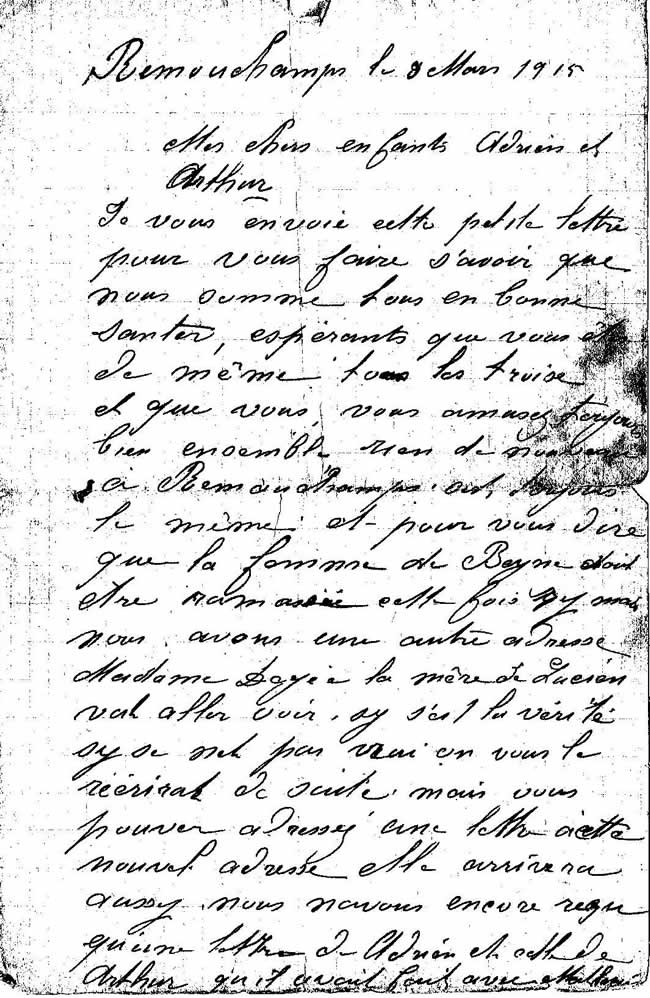 Remouchamps le 8 Mars 1915
Mes chers enfants Adrien et
Arthur
Je vous envoie cette petite lettre
pour vous faire s'avoir que
nous somme tous en bonne
santer, espérants que vous êtes
de même tous les troise
et que vous vous amusez toujours
bien ensemble rien de nouveau
a Remouchamps toujours
le même et pour vous dire
que la femme de Beyne doit
etre cette fois sy mais
nous avons une autre adresse
Madame la mère de Lucien
vat aller voir sy s'est la vérité
sy se net pas vrai on vous le
réérirat de suite mais vous
pouver adressez une lettre a cette
nouvel adresse elle arrivera
aussy nous navons encore reçu
qu'une lettre de Adrien et celle de
Arthur qu'il avait fait avec